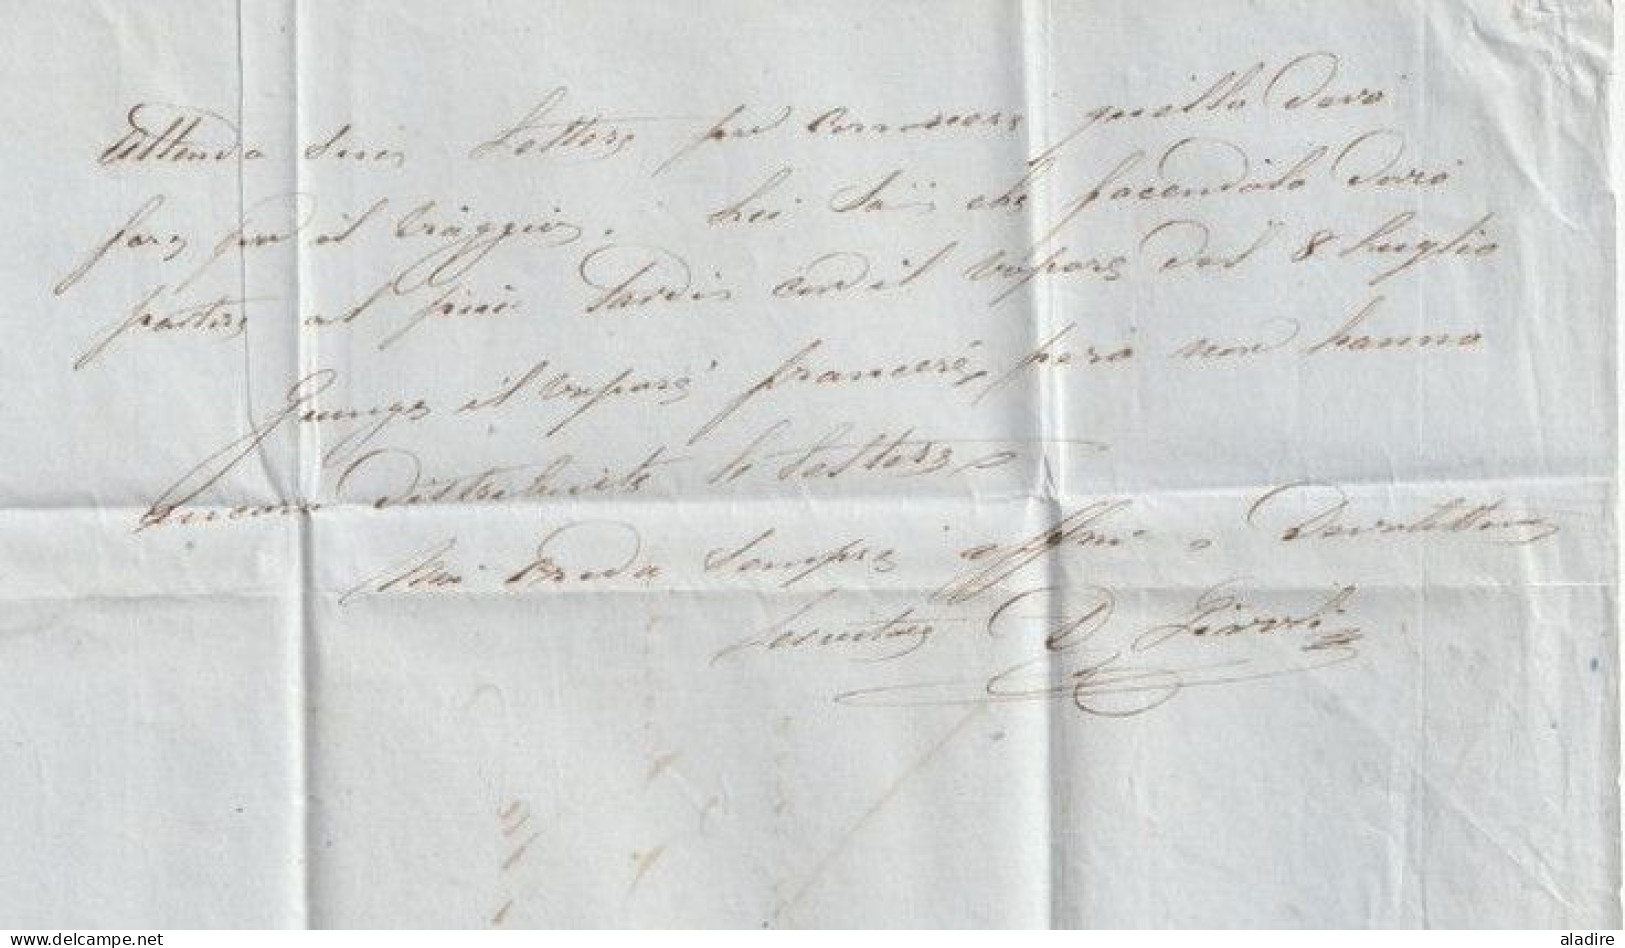 Attendo sue lettere per conoscere quello dovrò
fare per il viaggio. Lei sà che facendolo dovrò
partire al più tardi con il vapore del 8 Luglio
Giunge il vapore francese, però non hanno
ancora distribuite le lettere
Mi creda sempre affmo e Devotissmo
Servitore D
aladire